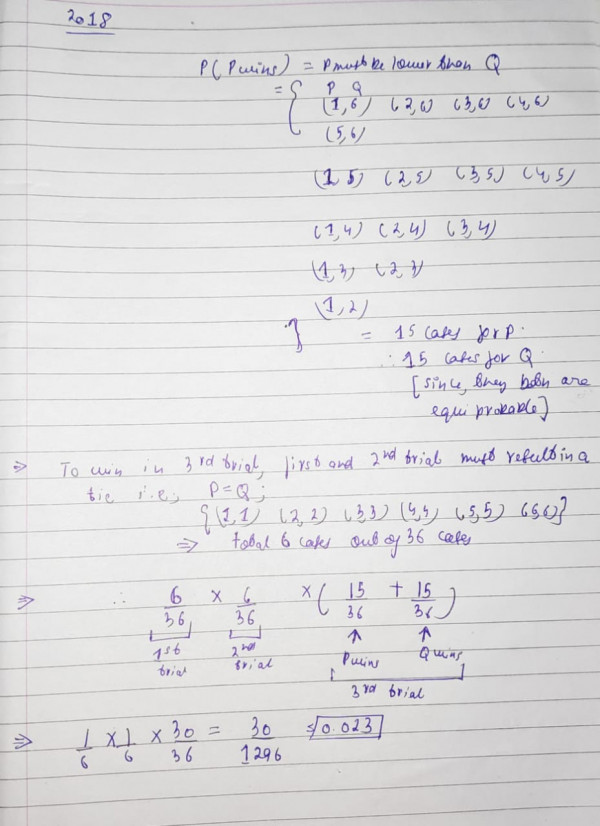 2018
P(P wins) = P must be lower than Q
P Q
= { (1,6) (2,6) (3,6) (4,6)
(5,6)
(1,5) (2,5) (3,5) (4,5)
(1,4) (2,4) (3,4)
(1,3) (2,3)
(1,2)
} = 15 cases for P.
∴ 15 cases for Q
[since, they both are
equi probable]
⇒ To win in 3rd trial, first and 2nd trial must result in a
tie i.e., P=Q;
{(1,1) (2,2) (3,3) (4,4) (5,5) (6,6)}
⇒ total 6 cases out of 36 cases
⇒ ∴ 6/36 × 6/36 × (15/36 + 15/36)
1st trial 2nd trial P wins Q wins
3rd trial
⇒ 1/6 × 1/6 × 30/36 = 30/1296 = 0.023